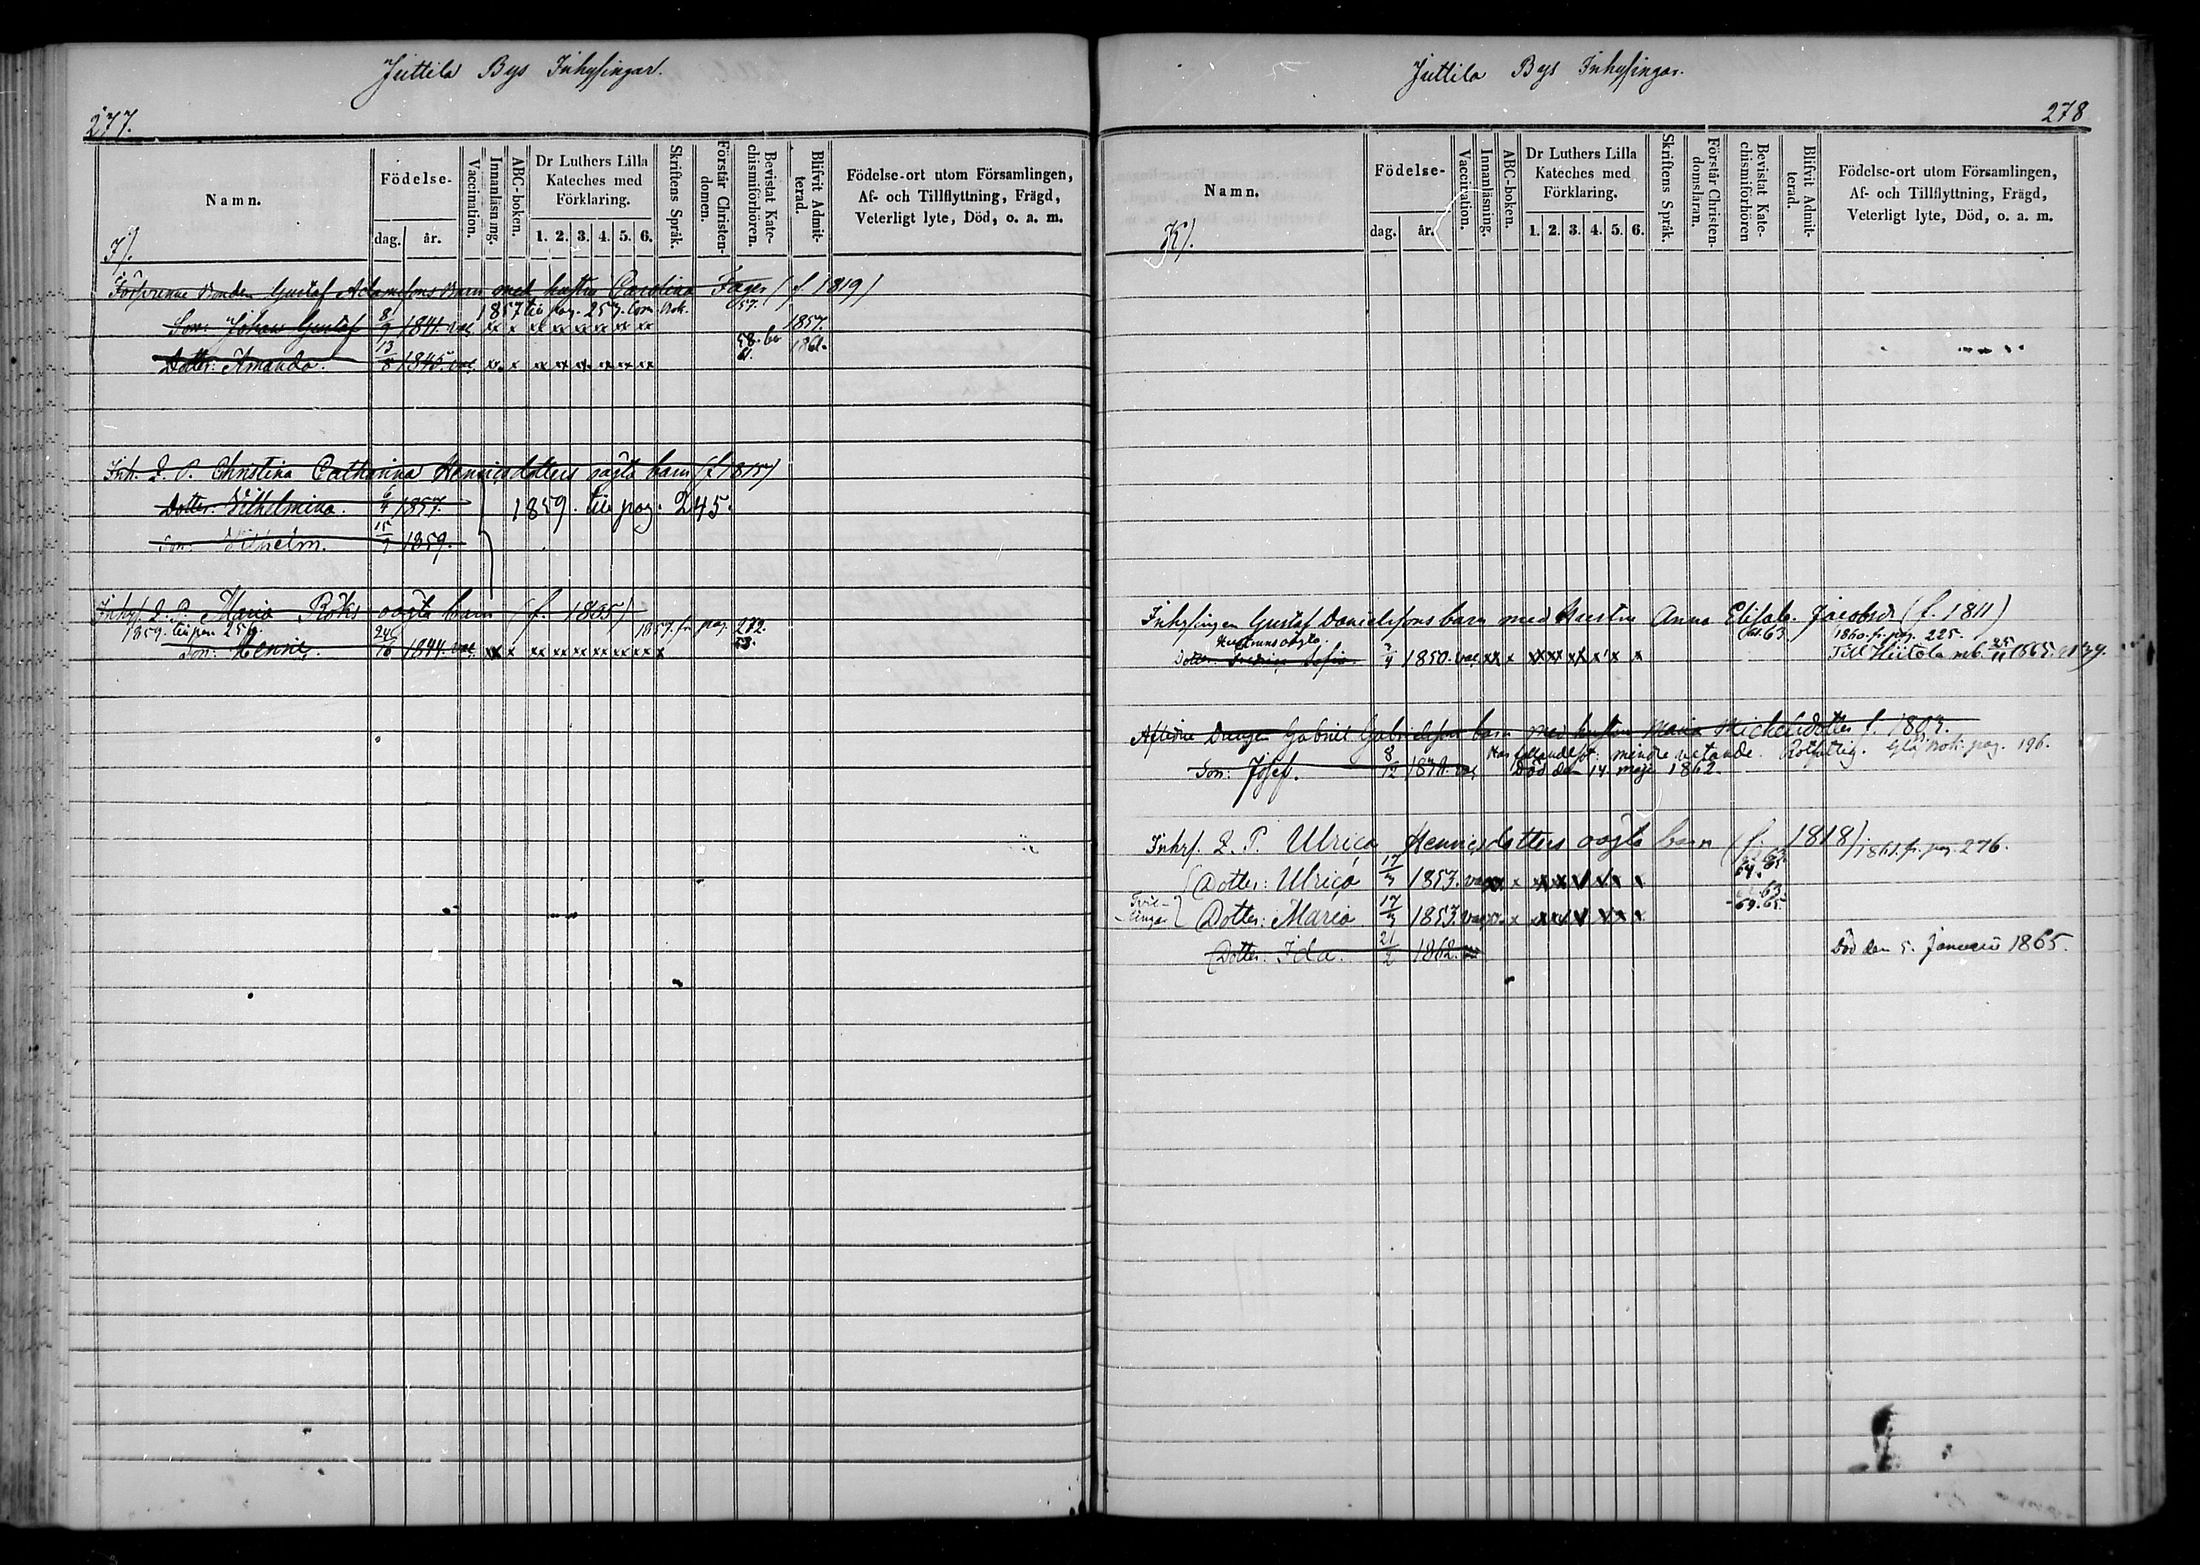 Juttila Bys Inhysingar.
277.
Namn.
Födelse-
dag. år.
Vaccination.
Innanläsning.
ABC-boken.
Dr Luthers Lilla Kateches med Förklaring.
1. 2. 3. 4. 5. 6.
Skriftens Språk.
Förstår Christen-domen.
Bevistat Kate-chismiförhören.
Blifvit Admit-terad.
Födelse-ort utom Församlingen, Af- och Tillflyttning, Frägd, Veterligt lyte, Död, o. a. m.
Bonden Gustaf Adamssons barn med hustru Carolina Fager (f. 1819)
1857 till pag. 257.
57.
Son: Johan Gustaf 1841. vac x x x x x x x x 1857.
58. 61. 1861.
Dotter: Amanda. 1845. vac x x x x x x x x
Inh. Q. P. Christina Catharina Henricsdotters oägta barn (f. 1815)
Dotter: Vilhelmina. 1857. 1859. till pag. 245.
Son: Vilhelm. 15 1859.
Inhys. Q. P. Maria Röks oägta barn (f. 1805)
1859. till pag. 256. 1857. fr. pag. 272.
Son: Henric 26/10 1844. vac x x x x x x x x x 58.
Juttila Bys Inhysingar.
278
Namn.
K).
Födelse-
dag. år.
Vaccination.
Innanläsning.
ABC-boken.
Dr Luthers Lilla Kateches med Förklaring.
1. 2. 3. 4. 5. 6.
Skriftens Språk.
Förstår Christen-domsläran.
Bevistat Kate-chismiförhören
Blifvit Admit-terad.
Födelse-ort utom Församlingen, Af- och Tillflyttning, Frägd, Veterligt lyte, Död, o. a. m.
Inhysingen Gustaf Danielssons barn med Hustru Anna Elisab. Jacobsd. (f. 1811)
Hustruns oägta. 63. 1860. fr. pag. 225.
Dotter: Sofia 1850. vac xx x x x x x x x Till Hiitola m. b. 25/11 1865.
Aflidne Drängen Gabriel Gabrielssons barn med hustrun Maria Michelsdotter f. 1803.
Har fallandesot: mindre vetande. pag. 196.
Son: Josef. 8/12 Död den 14 maji 1862.
Inhys. Q. P. Ulrica Henricsdotters oägta barn (f. 1818) 1861. fr. pag. 276.
Dotter: Ulrica 17/3 1853. vac x x x x x x x x 64. 65.
Tvil-lingar
Dotter: Maria 17/3 1853. vac x x x x x x x x 63. 64. 65.
Dotter: Ida. 21/2 1862. Död den 5. Januari 1865.